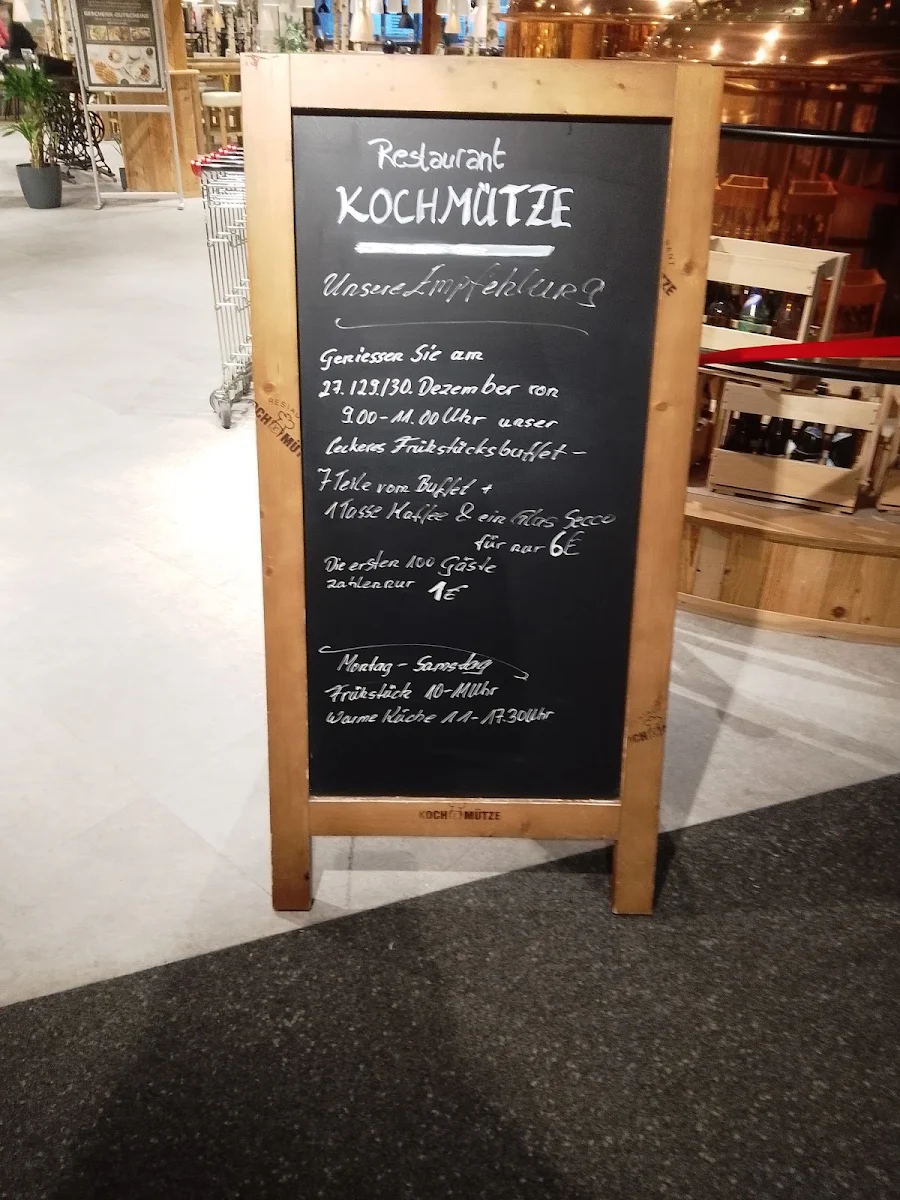 GESCHENK-GUTSCHEINE
Restaurant
KOCHMÜTZE
Unsere Empfehlung
Geniessen Sie am
27./29./30. Dezember von
9.00-11.00 Uhr unser
leckeres Frühstücksbuffet-
7 Teile vom Buffet +
1 Tasse Kaffee & ein Glas Secco
für nur 6€
Die ersten 100 Gäste
zahlen nur 1€
Montag - Samstag
Frühstück 10-11 Uhr
Warme Küche 11-17.30 Uhr
KOCH MÜTZE